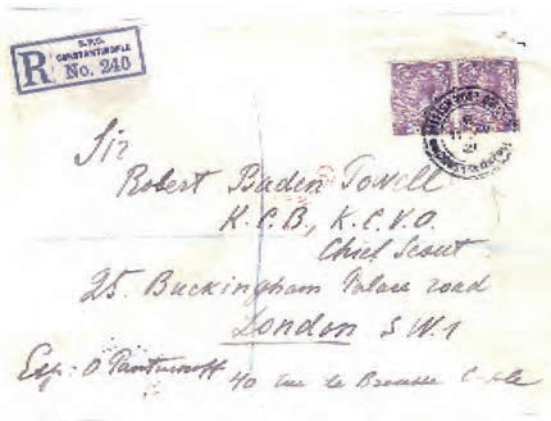 R
B.P.O.
CONSTANTINOPLE
No. 246
Sir
Robert Baden Powell
K.C.B., K.C.V.O.
Chief Scout
25. Buckingham Palace road
London S.W.1
Exp: O
40 rue de Brousse C-ple